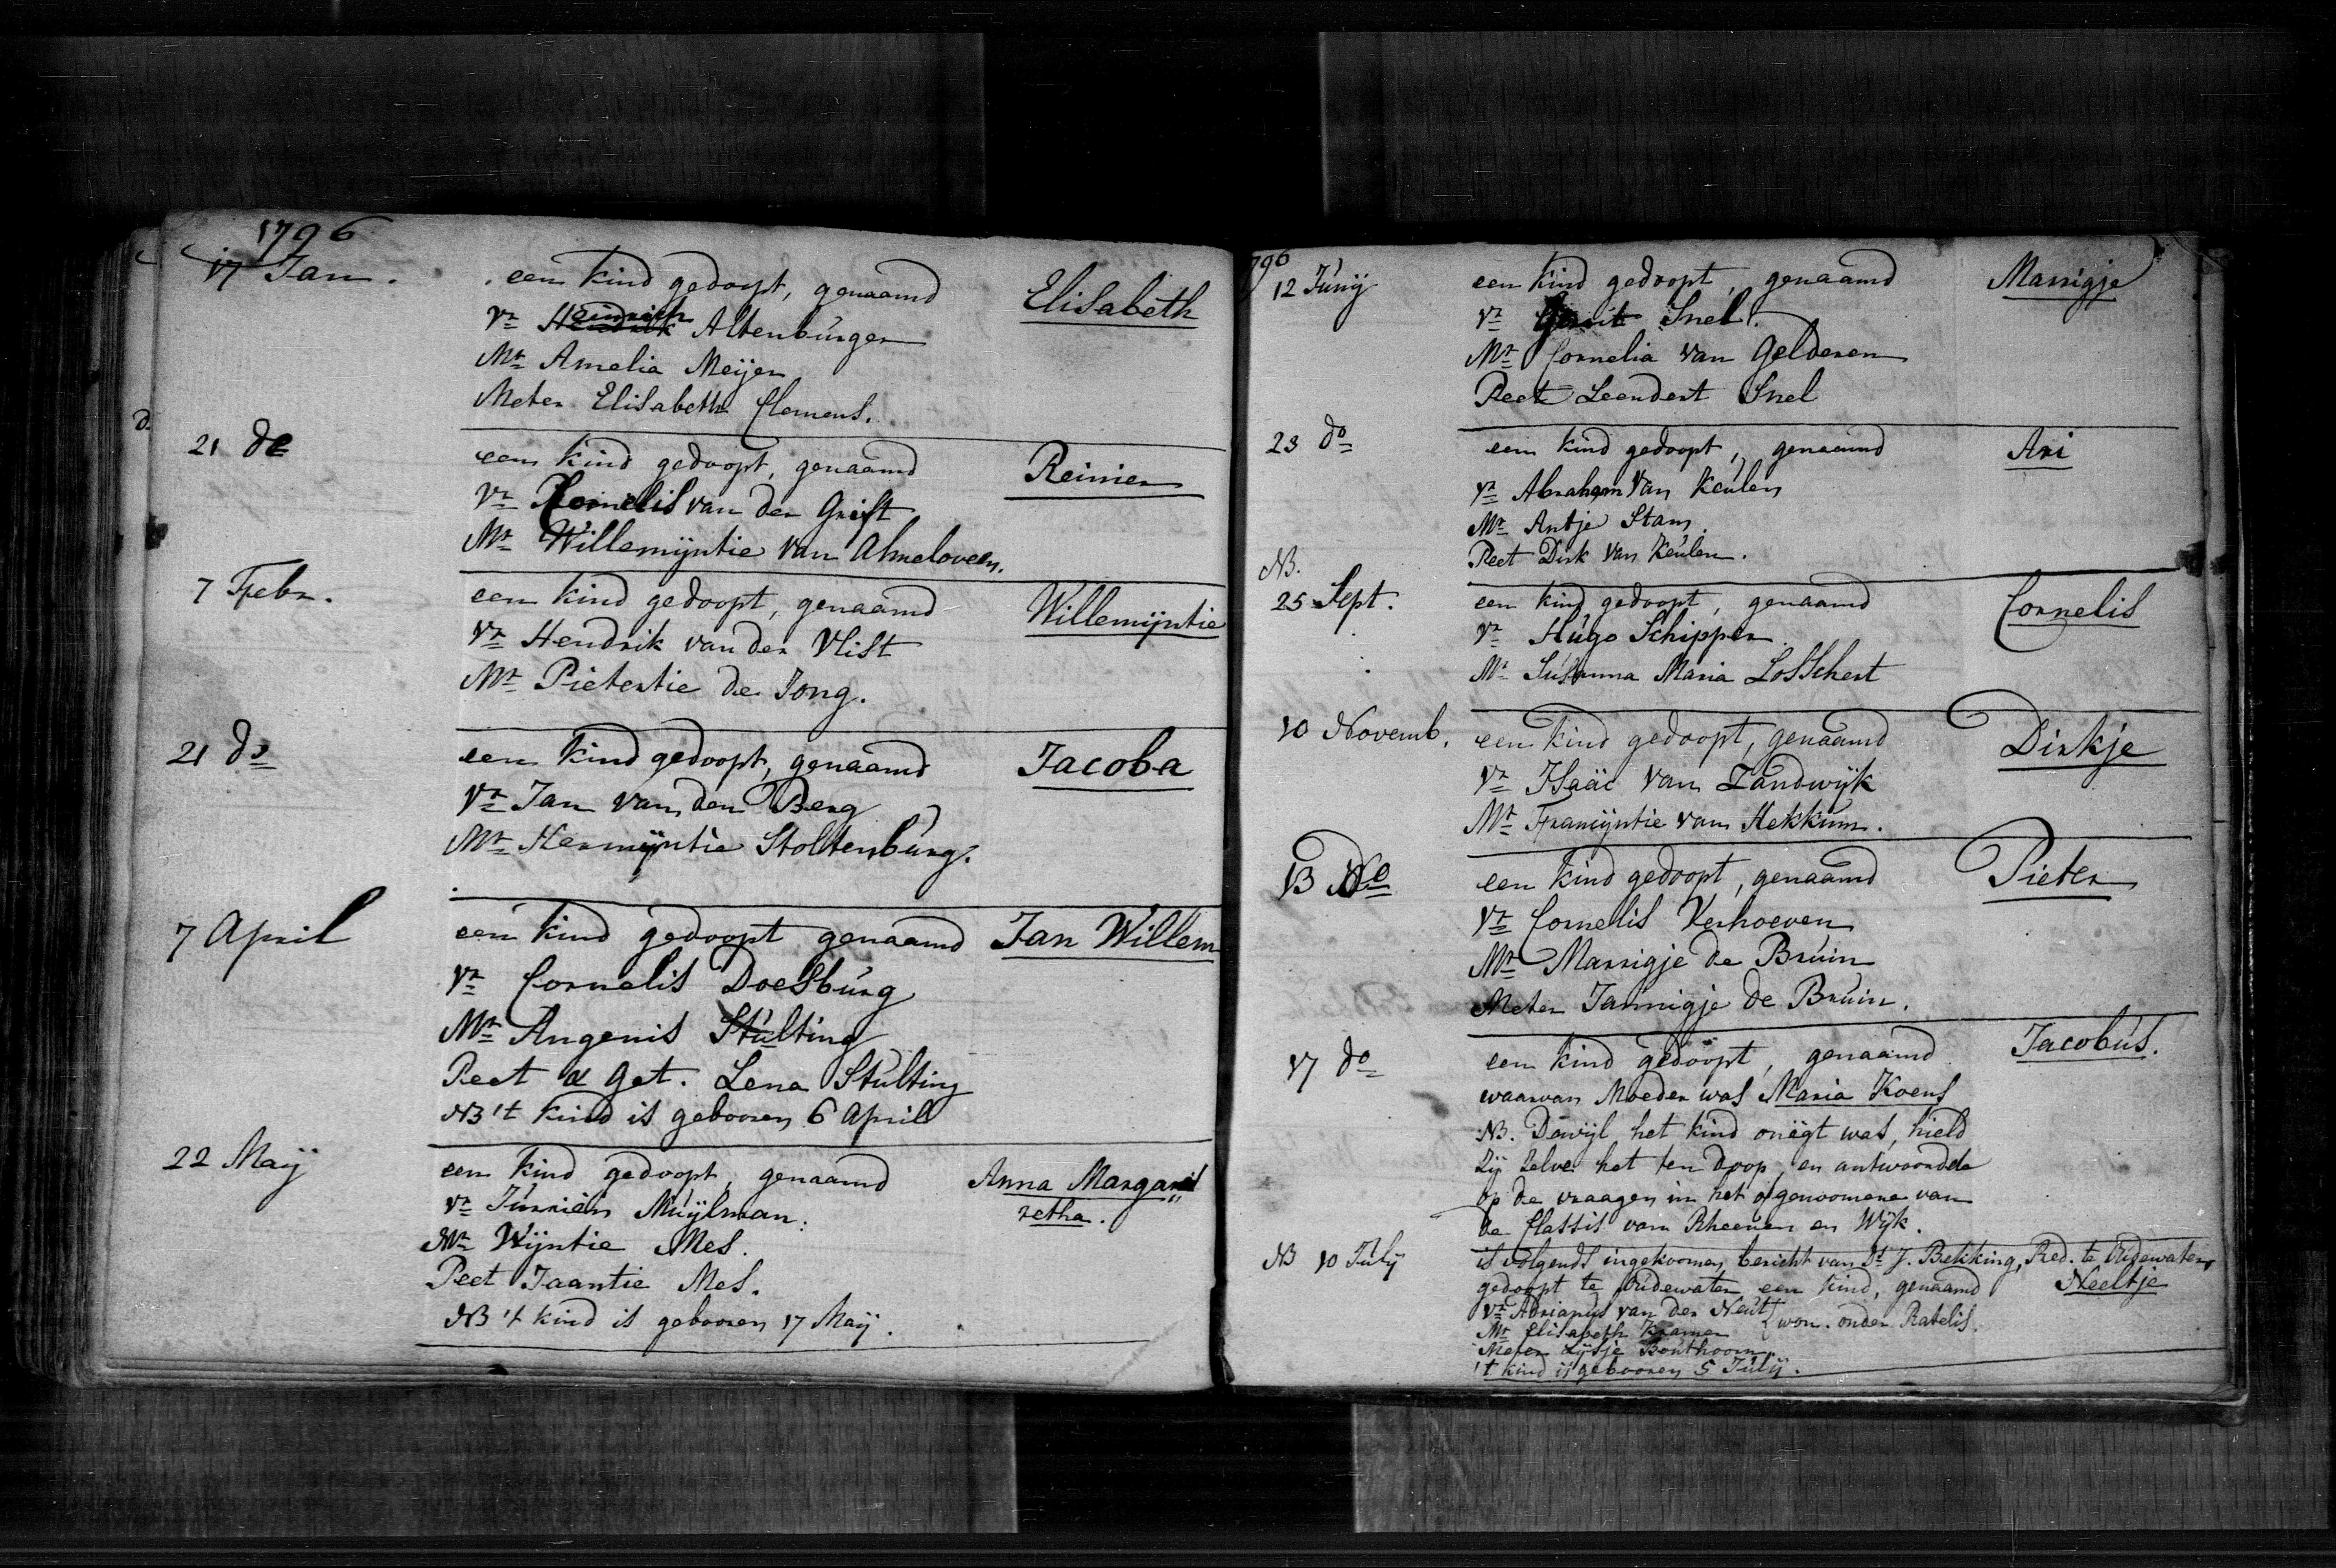 1796
17 Jan. een kind gedoopt, genaamd Elisabeth
Vr Heinrich Altenburger
Mr Amelia Meijer
Meter Elisabeth Clemens.
21 do een kind gedoopt, genaamd Reinier
Vr Cornelis van der Grift
Mr Willemijntie van Almeloveen.
7 Febr. een kind gedoopt, genaamd Willemijntie
Vr Hendrik van der Vlist
Mr Pietertie de Jong.
21 do een kind gedoopt, genaamd Jacoba
Vr Jan van den Berg
Mr Hermijntie Stoltenburg.
7 April een kind gedoopt genaamd Jan Willem
Vr Cornelis Doesburg
Mr Angenis Stulting
Peet & Get. Lena Stulting
NB 't kind is gebooren 6 April
22 Maij een kind gedoopt, genaamd Anna Marga
retha.
Vr Jurrien Muijlman.
Mr Wijntie Mes.
Peet Jaantie Mes.
NB 't kind is gebooren 17 Maij.
796
12 Junij een kind gedoopt, genaamd Marrigje
Vr Gerrit Snel.
Mr Cornelia van Gelderen
Peet Leendert Snel
23 do een kind gedoopt, genaamd Ari
Vr Abraham van Keulen
Mr Antje Stam.
Peet Dirk van Keulen.
NB.
25 Sept. een kind gedoopt, genaamd Cornelis
Vr Hugo Schipper
Mr Susanna Maria Losschert
10 Novemb. een kind gedoopt, genaamd Dirkje
Vr Isaäc van Zandwijk
Mr Francijntie van Hekkum.
13 do een kind gedoopt, genaamd Pieter
Vr Cornelis Verhoeven
Mr Marrigje de Bruin
Meter Jannigje de Bruin.
17 do een kind gedoopt, genaamd Jacobus.
waarvan Moeder was Maria Koens
NB. Dewijl het kind onëgt was, hield
zij zelve het ten doop, en antwoordde
op de vraagen in het afgenoomene van
de Classis van Rheenen en Wijk.
NB 10 Julij is volgends ingekoomen bericht van Ds J. Bekking, Pred. te Oudewater,
gedoopt te Oudewater een kind, genaamd Neeltje
Vr Adrianus van der Neut
Mr Elisabeth Kramer
won. onder Papelis.
Meter Lijsje Bouthoorn
't kind is gebooren 5 Julij.